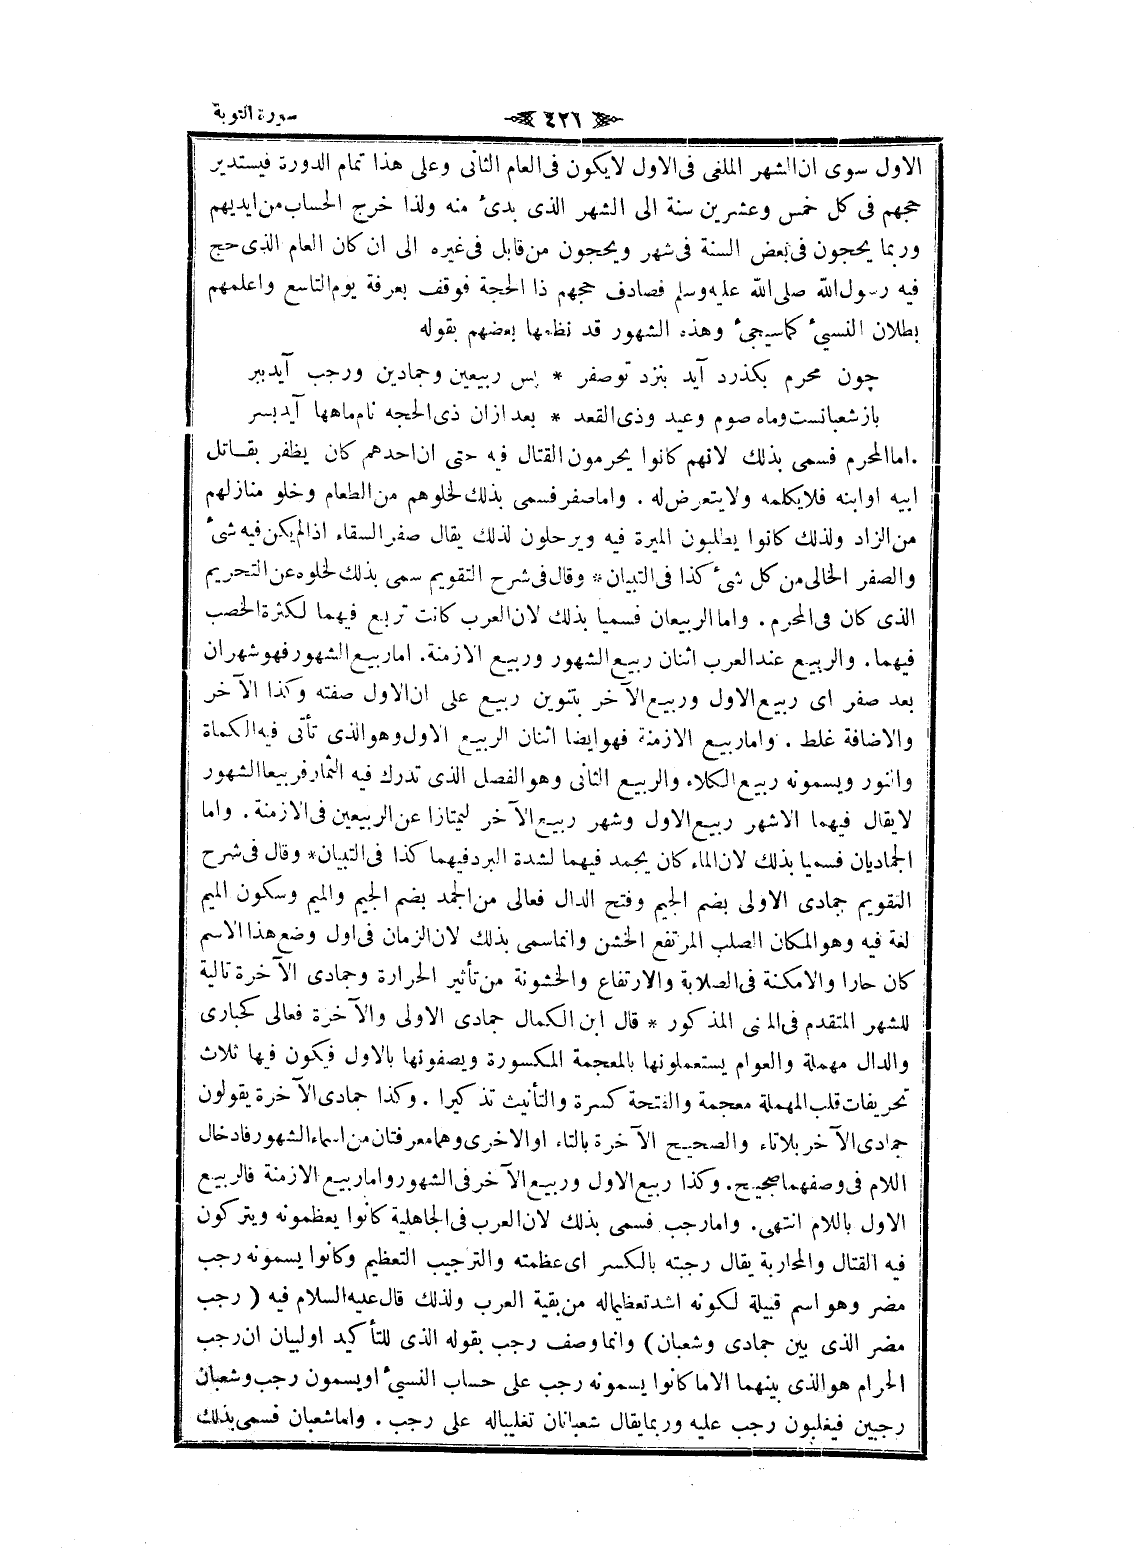 سورة التوبة
٤٢٦
الاول سوى ان الشهر الملغى فى الاول لا يكون فى العام الثانى وعلى هذا تمام الدورة فيستدير
حجهم فى كل خمس وعشرين سنة الى الشهر الذى بدئ منه ولذا خرج الحساب من ايديهم
وربما يحجون فى بعض السنة فى شهر ويحجون من قابل فى غيره الى ان كان العام الذى حج
فيه رسول الله صلى الله عليه وسلم فصادف حجهم ذا الحجة فوقف بعرفة يوم التاسع واعلمهم
بطلان النسيئ كما سيجيئ وهذه الشهور قد نظمها بعضهم بقوله
چون محرم بكذرد آيد بنزد تو صفر * پس ربيعين وجمادين ورجب آيد ببر
باز شعبانست وماه صوم وعيد وذى القعد * بعد ازان ذى الحجه نام ماهها آيد بسر
. اما المحرم فسمى بذلك لانهم كانوا يحرمون القتال فيه حتى ان احدهم كان يظفر بقاتل
ابيه او ابنه فلا يكلمه ولا يتعرض له . واما صفر فسمى بذلك لخلوهم من الطعام وخلو منازلهم
من الزاد ولذلك كانوا يطلبون الميرة فيه ويرحلون لذلك يقال صفر السقاء اذا لم يكن فيه شئ
والصفر الخالى من كل شئ كذا فى التبيان * وقال فى شرح التقويم سمى بذلك لخلوه عن التحريم
الذى كان فى المحرم . واما الربيعان فسميا بذلك لان العرب كانت تربع فيهما لكثرة الخصب
فيهما . والربيع عند العرب اثنان ربيع الشهور وربيع الازمنة . اما ربيع الشهور فهو شهران
بعد صفر اى ربيع الاول وربيع الآخر بتنوين ربيع على ان الاول صفته وكذا الآخر
والاضافة غلط . واما ربيع الازمنة فهو ايضا اثنان الربيع الاول وهو الذى تأتى فيه الكماة
والنور ويسمونه ربيع الكلاء والربيع الثانى وهو الفصل الذى تدرك فيه الثمار فربيعا الشهور
لا يقال فيهما الا شهر ربيع الاول وشهر ربيع الآخر ليمتازا عن الربيعين فى الازمنة . واما
الجماديان فسميا بذلك لان الماء كان يجمد فيهما لشدة البرد فيهما كذا فى التبيان * وقال فى شرح
التقويم جمادى الاولى بضم الجيم وفتح الدال فعالى من الجمد بضم الجيم والميم وسكون الميم
لغة فيه وهو المكان الصلب المرتفع الخشن وانما سمى بذلك لان الزمان فى اول وضع هذا الاسم
كان حارا والامكنة فى الصلابة والارتفاع والخشونة من تأثير الحرارة وجمادى الآخرة تالية
للشهر المتقدم فى المعنى المذكور * قال ابن الكمال جمادى الاولى والآخرة فعالى كحبارى
والدال مهملة والعوام يستعملونها بالمعجمة المكسورة ويصفونها بالاول فيكون فيها ثلاث
تحريفات قلب المهملة معجمة والفتحة كسرة والتأنيث تذكيرا . وكذا جمادى الآخرة يقولون
جمادى الآخر بلا تاء والصحيح الآخرة بالتاء او الاخرى وهما معرفتان من اسماء الشهور فادخال
اللام فى وصفهما صحيح . وكذا ربيع الاول وربيع الآخر فى الشهور واما ربيع الازمنة فالربيع
الاول باللام انتهى . واما رجب فسمى بذلك لان العرب فى الجاهلية كانوا يعظمونه ويتركون
فيه القتال والمحاربة يقال رجبته بالكسر اى عظمته والترجيب التعظيم وكانوا يسمونه رجب
مضر وهو اسم قبيلة لكونه اشد تعظيما له من بقية العرب ولذلك قال عليه السلام فيه ( رجب
مضر الذى بين جمادى وشعبان ) وانما وصف رجب بقوله الذى للتأكيد او لبيان ان رجب
الحرام هو الذى بينهما الا ما كانوا يسمونه رجب على حساب النسيئ او يسمون رجب وشعبان
رجبين فيغلبون رجب عليه وربما يقال شعبانان تغليبا له على رجب . واما شعبان فسمى بذلك